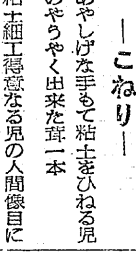 ―こねり―
あやしげな手もて粘土をひねる児
のやうやく出来た茸一本
粘土細工得意なる児の人間像目に